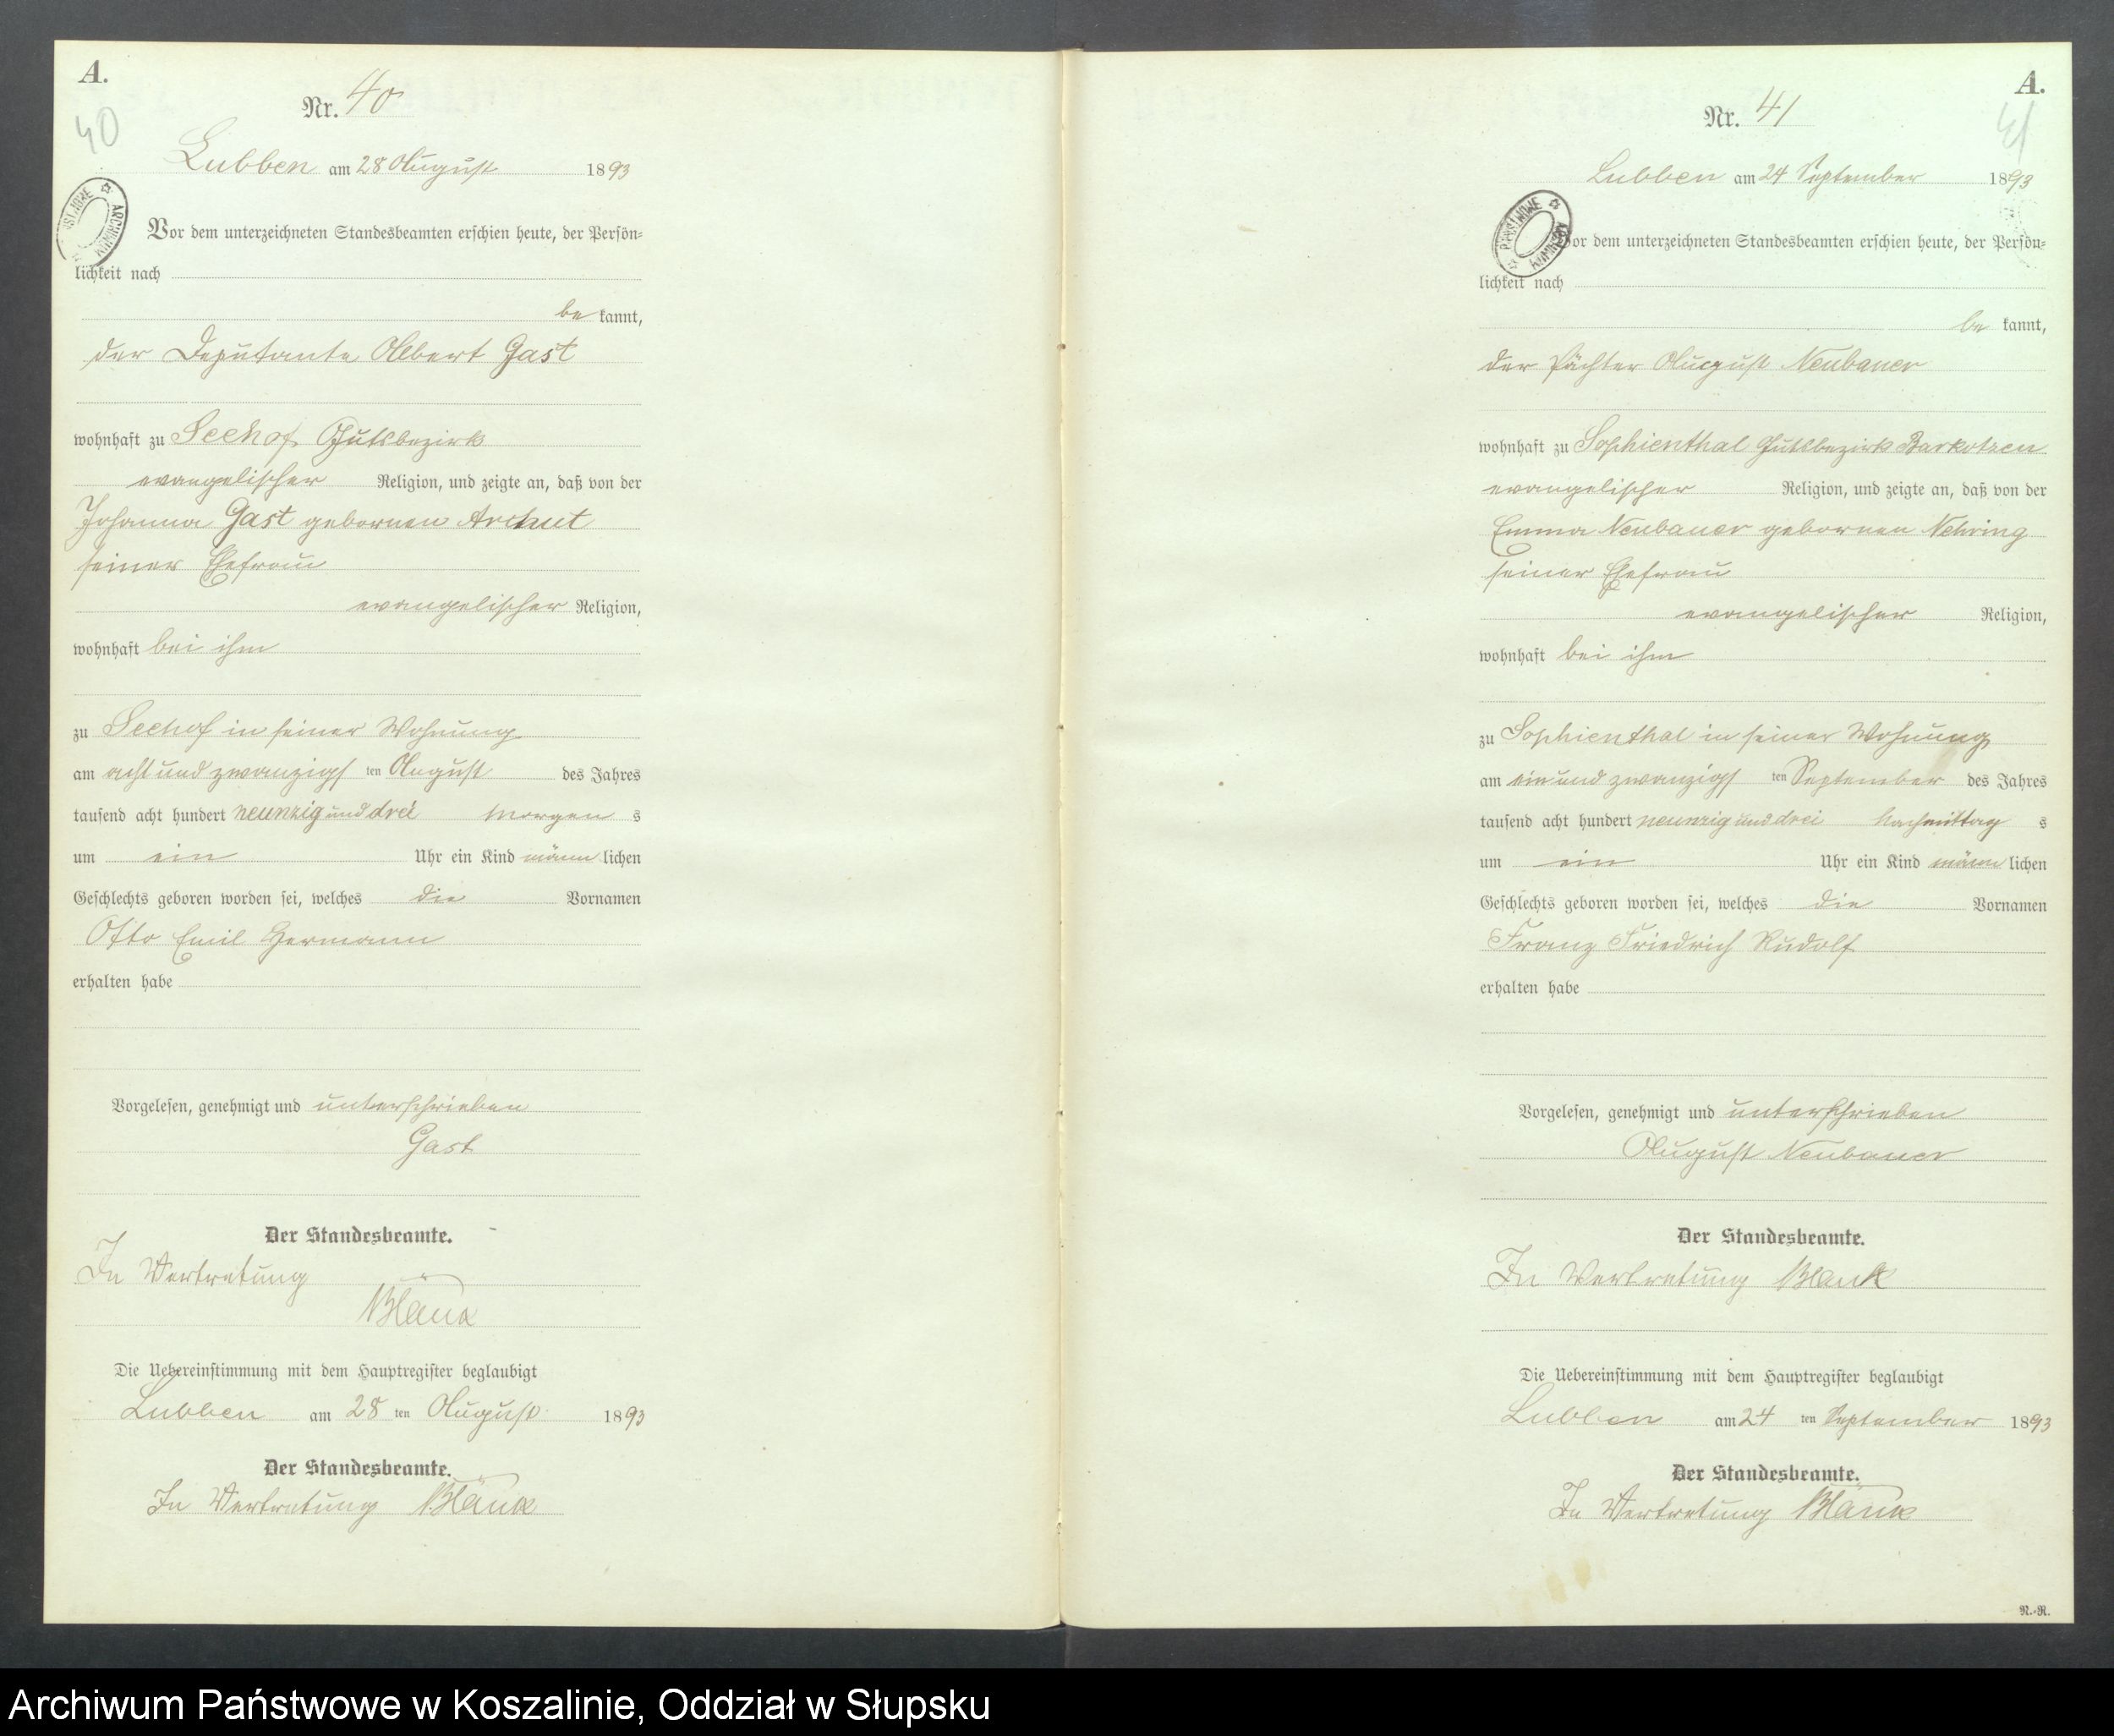 A.
Nr. 40
40
Lubben am 28 August 1893
Vor dem unterzeichneten Standesbeamten erschien heute, der Persön=
lichkeit nach
be kannt,
der Deputante Albert Gast
wohnhaft zu Seehof Gutsbezirk
evangelischer Religion, und zeigte an, daß von der
Johanna Gast gebornen Archut
seiner Ehefrau
evangelischer Religion,
wohnhaft bei ihm
zu Seehof in seiner Wohnung
am acht und zwanzigs ten August des Jahres
tausend acht hundert neunzig und drei Morgen s
um ein Uhr ein Kind männ lichen
Geschlechts geboren worden sei, welches die Vornamen
Otto Emil Hermann
erhalten habe
Vorgelesen, genehmigt und unterschrieben
Gast
Der Standesbeamte.
In Vertretung
Die Uebereinstimmung mit dem Hauptregister beglaubigt
Lubben am 28 ten August 1893
Der Standesbeamte.
In Vertretung
A.
Nr. 41
41
Lubben am 24 September 1893
Vor dem unterzeichneten Standesbeamten erschien heute, der Persön=
lichkeit nach
be kannt,
der Pächter August Neubauer
wohnhaft zu Sophienthal Gutsbezirk Barkotzen
evangelischer Religion, und zeigte an, daß von der
Emma Neubauer gebornen Nehring
seiner Ehefrau
evangelischer Religion,
wohnhaft bei ihm
zu Sophienthal in seiner Wohnung
am ein und zwanzigs ten September des Jahres
tausend acht hundert neunzig und drei Nachmittag s
um ein Uhr ein Kind männ lichen
Geschlechts geboren worden sei, welches die Vornamen
Franz Friedrich Rudolf
erhalten habe
Vorgelesen, genehmigt und unterschrieben
August Neubauer
Der Standesbeamte.
In Vertretung
Die Uebereinstimmung mit dem Hauptregister beglaubigt
Lubben am 24 ten September 1893
Der Standesbeamte.
In Vertretung
R.-R.
Archiwum Państwowe w Koszalinie, Oddział w Słupsku